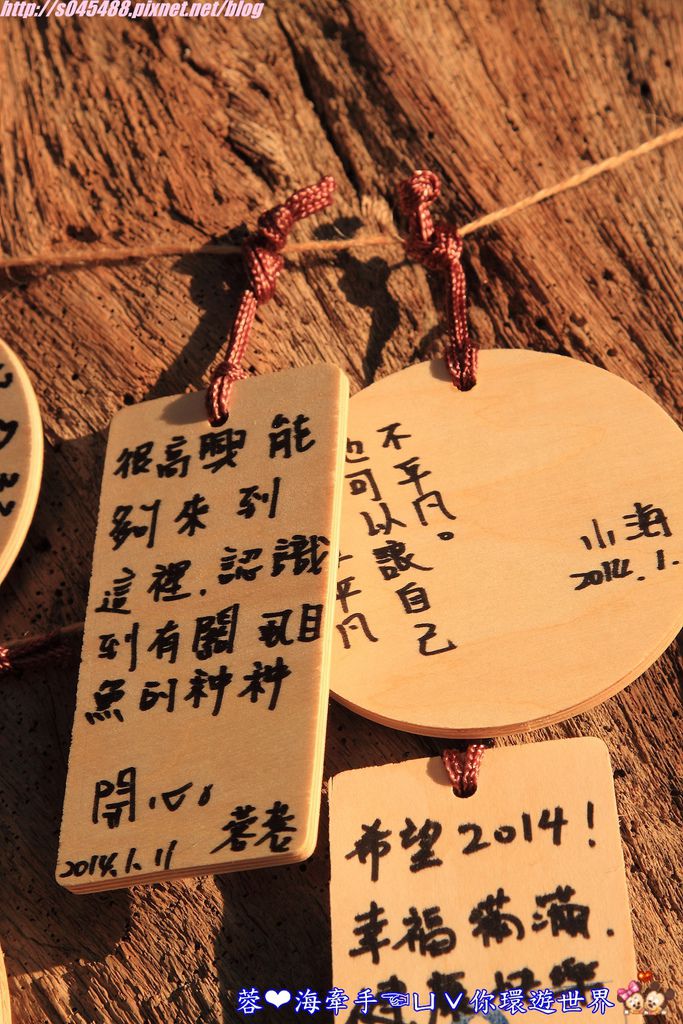 http://s045488.pixnet.net/blog
很高興 能
夠來到
這裡,認識
到有關虱目
魚的种种
開心。
蓉蓉
2014.1.11
平凡
也可以讓自己
不平凡。
小海
2014.1.
希望2014!
幸福滿滿.
蓉❤海牽手☜ㄩˇ你環遊世界